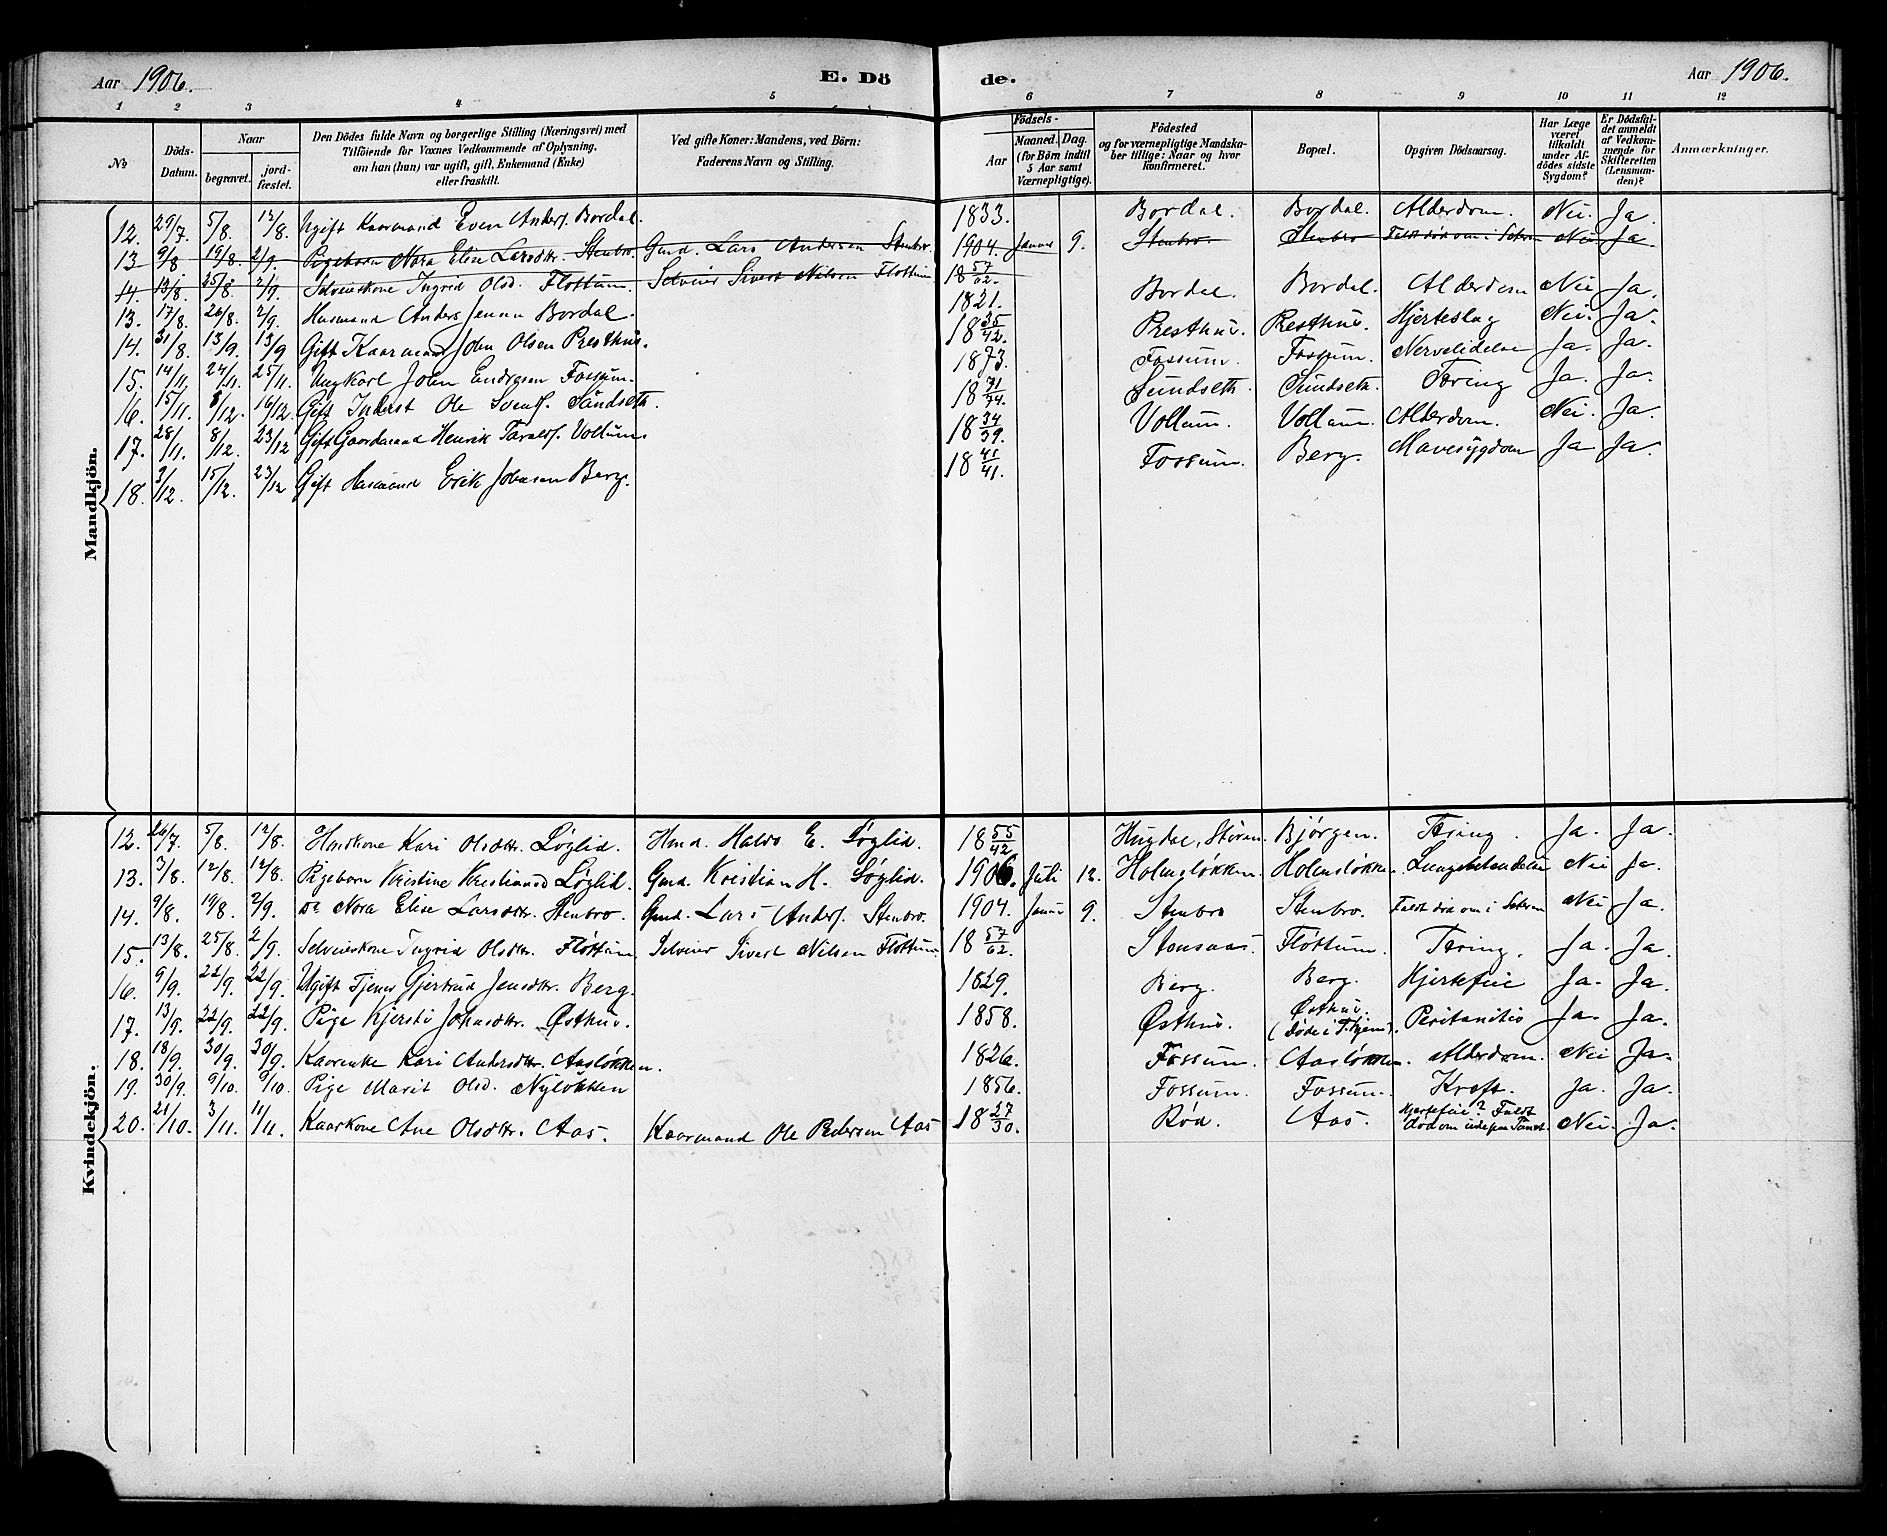 Aar 1906.
E. Dö de.
Aar 1906.
1 2 3 4 5 6 7 8 9 10 11 12
No
Döds-Datum.
Naar
begravet.
jord-fæstet.
Den Dödes fulde Navn og borgerlige Stilling (Næringsvei) med
Tilföiende for Voxnes Vedkommende af Oplysning,
om han (hun) var ugift, gift, Enkemand (Enke)
eller fraskilt.
Ved gifte Koner: Mandens, ved Börn:
Faderens Navn og Stilling.
Födsels-
Aar
Maaned. Dag.
(for Börn indtil
5 Aar samt
Værnepligtige).
Födested
og for værnepligtige Mandska-
ber tillige: Naar og hvor
konfirmeret.
Bopæl.
Opgiven Dödsaarsag.
Har Læge
været
tilkaldt
under Af-
dödes sidste
Sygdom?
Er Dödsfal-
det anmeldt
af Vedkom-
mende for
Skifteretten
(Lensman-
den)?
Anmærkninger.
Mandkjön.
12. 29/7. 5/8. 12/8. Ugift Kaarmand Even Anders. Bordal. 1833. Bordal. Bordal. Alderdom. Nei. Ja.
13 9/8 19/8. 2/9. Pigebarn Nora Elise Larsdtr. Stenbro. Gmd. Lars Andersen Stenbro. 1904. Januar 9. Stenbro. Stenbro Faldt død om i Nei Ja.
14. 13/8. 25/8. 2/9. Selveierkone Ingrid Olsd. Flottum. Selveier Sivert Nilsen Flottum 18 57/62.
13. 17/8. 26/8. 2/9. Husmand Anders Jensen Bordal. 1821. Bordal. Bordal. Alderdom Nei Ja.
14. 31/8. 13/9. 13/9 Gift Kaarmand John Olsen Presthus. 18 35/42. Presthus. Presthus. Hjerteslag Nei. Ja.
15. 14/11. 24/11. 25/11. Ungkarl John Endresen Fossum. 1873. Fossum. Fossum. Nervelidelse Ja. Ja.
16. 15/11. 8/12. 16/12. Gift Inderst Ole Svends. Sundseth. 18 71/74. Sundseth. Sundseth. Tæring Ja. Ja.
17. 28/11. 8/12. 23/12 Gift Gaardmand Henrik Tarald. Vollum. 18 34/39. Vollum. Vollum. Alderdom. Nei. Ja.
18. 3/12. 15/12. 23/12 Gift Husmand Erik Johnsen Berg. 18 45/41. Fossum. Berg. Mavesygdom Ja Ja.
Kvindekjön.
12. 26/7. 5/8. 12/8. Huskone Kari Olsdtr. Løglid. Hmd. Haldo E. Løglid. 18 55/42 Hugdal, Støren. Bjørgen. Tæring. Ja. Ja.
13. 3/8. 12/8. 12/8. Pigebarn Kristine Kristiansd Løglid. Gmd. Kristian H. Løglid. 1906. Juli 12. Holmsløkken. Holmsløkken. Lungebetændelse Nei Ja.
14. 9/8. 19/8. 2/9. Do Nora Elise Larsdtr. Stenbro. Gmd. Lars Anders. Stenbro. 1904. Januar 9. Stenbro Stenbro. Faldt død om i Nei Ja.
15. 13/8. 25/8. 2/9. Selveierkone Ingrid Olsdtr. Fløttum. Selveier Sivert Nilsen Flottum. 18 57/62. Stensaas. Fløttum. Tæring. Ja. Ja.
16. 9/9. 22/9. 22/9. Ugift Tjener Gjertrud Jensdtr. Berg. 1829. Berg. Berg. Hjertefeil Ja. Ja.
17. 13/9. 22/9. 22/9. Pige Kjersti Johnsdtr. Østhus. 1858. Østhus. Østhus. (døde i T.hjem). Peritonitis Ja. Ja.
18. 18/9. 30/9. 30/9. Kaarenke Kari Andersdtr. Aasløkken. 1826. Fossum. Aasløkken. Alderdom. Nei Ja.
19. 30/9. 9/10. 9/10. Pige Marit Olsd. Nyløkken 1856. Fossum. Fossum. Kreft. Ja. Ja.
20. 21/10. 3/11. 11/11. Kaarkone Ane Olsdtr. Aas. Kaarmand Ole Pedersen Aas 18 27/30. Rød. Aas. Hjertefeil? Faldt død om Nei. Ja.